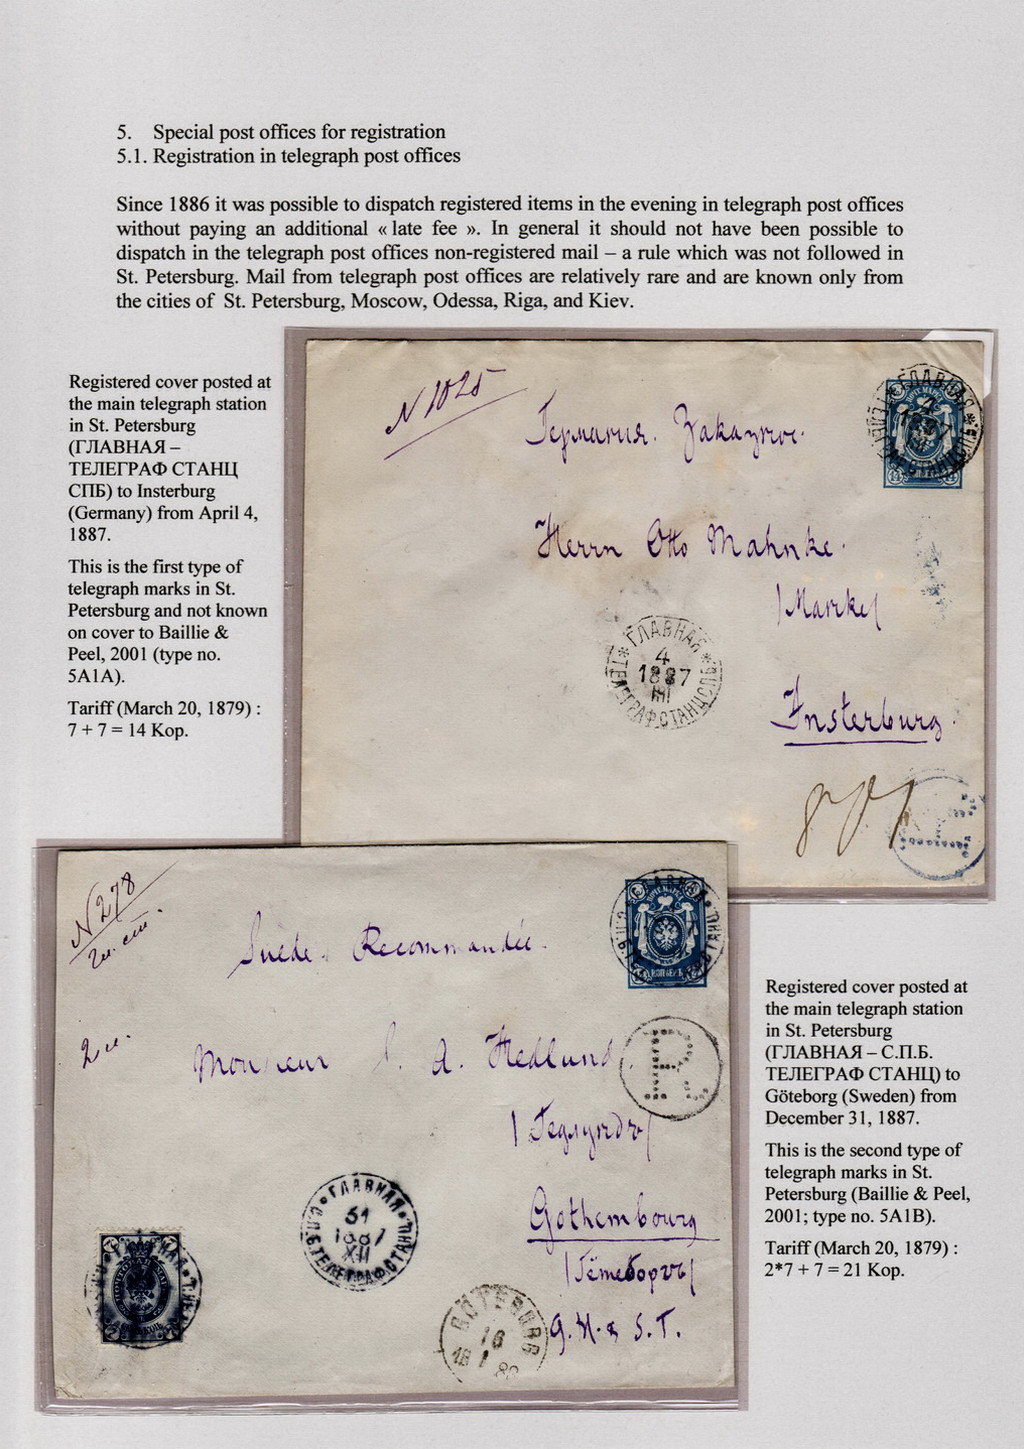 5. Special post offices for registration
5.1. Registration in telegraph post offices
Since 1886 it was possible to dispatch registered items in the evening in telegraph post offices
without paying an additional « late fee ». In general it should not have been possible to
dispatch in the telegraph post offices non-registered mail – a rule which was not followed in
St. Petersburg. Mail from telegraph post offices are relatively rare and are known only from
the cities of St. Petersburg, Moscow, Odessa, Riga, and Kiev.
Registered cover posted at
the main telegraph station
in St. Petersburg
(ГЛАВНАЯ –
ТЕЛЕГРАФ СТАНЦ
СПБ) to Insterburg
(Germany) from April 4,
1887.
This is the first type of
telegraph marks in St.
Petersburg and not known
on cover to Baillie &
Peel, 2001 (type no.
5A1A).
Tariff (March 20, 1879) :
7 + 7 = 14 Kop.
N 1025
Германия. Заказное.
Herrn Otto Mahnke.
Insterburg.
ГЛАВНАЯ
4
1887
III
ТЕЛЕГРАФ.СТАНЦ.СПБ
N 278
Suède. Recommandée.
Monsieur A. Hedlund
R.
|Гедлундъ|
Gothembourg
|Гётеборгъ|
G. M. & S. T.
ГЛАВНАЯ
31
1887
XII
С.П.Б. ТЕЛЕГРАФ СТАНЦ.
GÖTEBORG
16
Registered cover posted at
the main telegraph station
in St. Petersburg
(ГЛАВНАЯ – С.П.Б.
ТЕЛЕГРАФ СТАНЦ) to
Göteborg (Sweden) from
December 31, 1887.
This is the second type of
telegraph marks in St.
Petersburg (Baillie & Peel,
2001; type no. 5A1B).
Tariff (March 20, 1879) :
2*7 + 7 = 21 Kop.